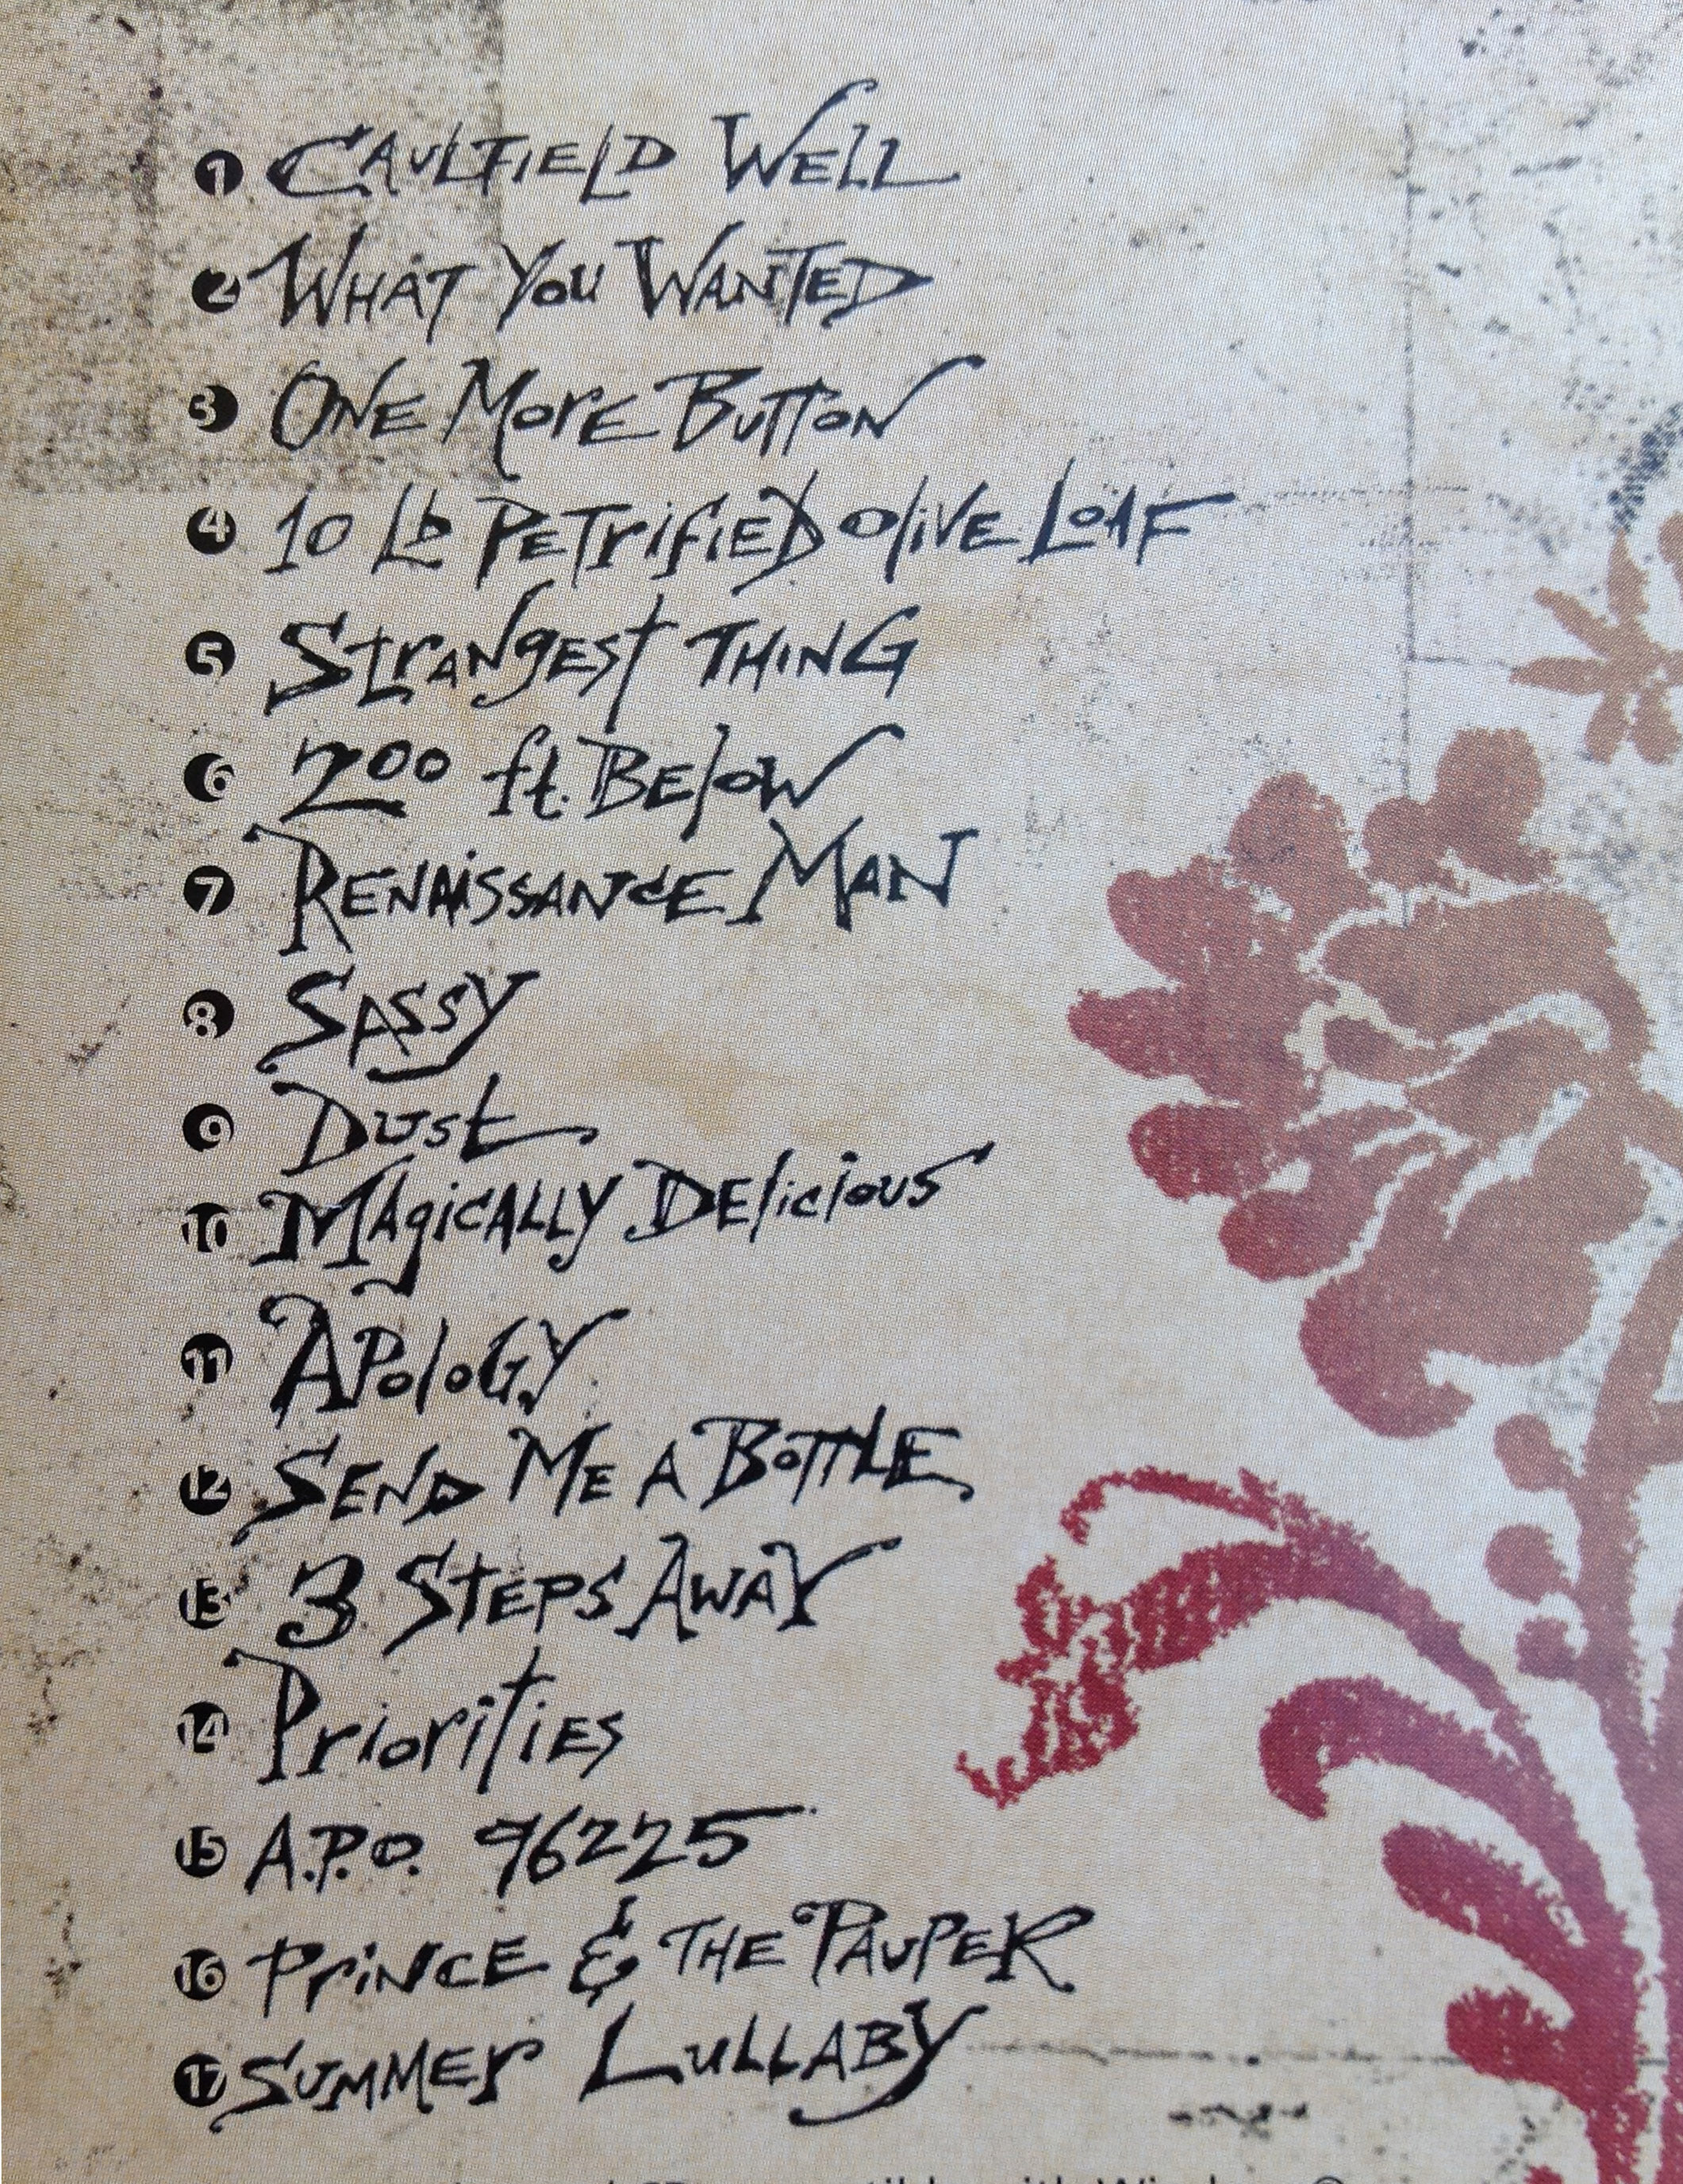 1 Caulfield Well
2 What You Wanted
3 One More Button
4 10 Lb Petrified Olive Loaf
5 Strangest Thing
6 200 ft. Below
7 Renaissance Man
8 Sassy
9 Dust
10 Magically Delicious
11 Apology
12 Send Me A Bottle
13 3 Steps Away
14 Priorities
15 A.P.O. 96225
16 Prince & The Pauper
17 Summer Lullaby